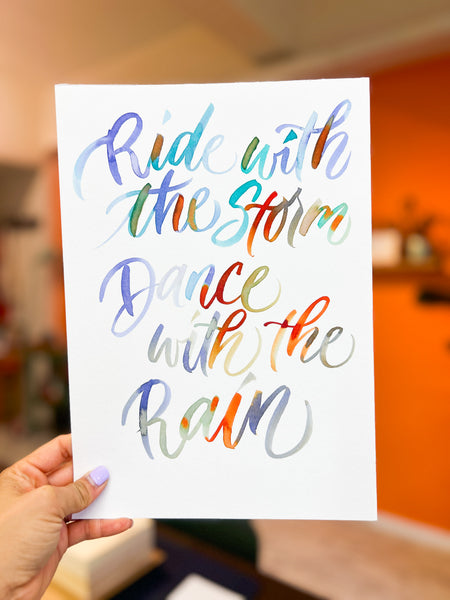 Ride with
the Storm
Dance
with the
Rain